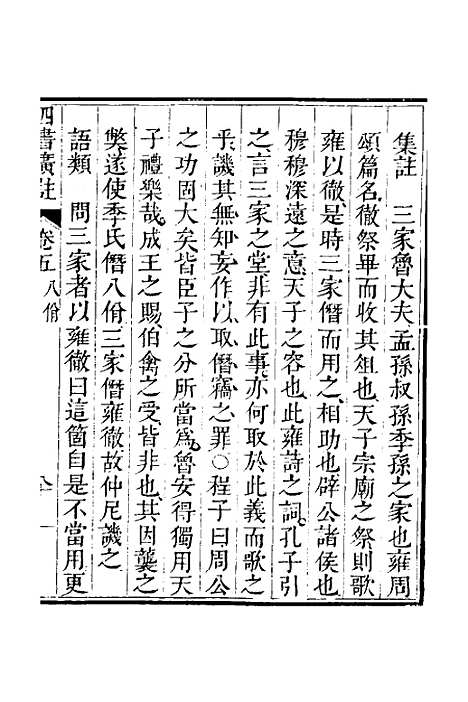 集註　三家魯大夫孟孫叔孫季孫之家也雍周
頌篇名徹祭畢而收其俎也天子宗廟之祭則歌
雍以徹是時三家僭而用之相助也辟公諸侯也
穆穆深遠之意天子之容也此雍詩之詞孔子引
之言三家之堂非有此事亦何取於此義而歌之
乎譏其無知妄作以取僭竊之罪○程子曰周公
之功固大矣皆臣子之分所當爲魯安得獨用天
子禮樂哉成王之賜伯禽之受皆非也其因襲之
獘遂使季氏僭八佾三家僭雍徹故仲尼譏之
語類　問三家者以雍徹曰這箇自是不當用更
四書廣註　卷五　八佾